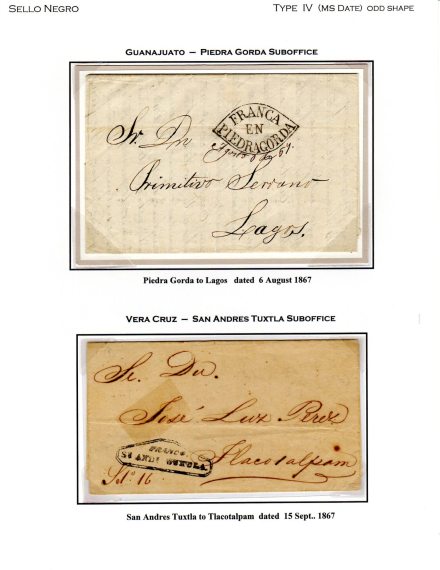 SELLO NEGRO
TYPE IV (MS DATE) ODD SHAPE
GUANAJUATO – PIEDRA GORDA SUBOFFICE
FRANCA
EN
PIEDRAGORDA
Agosto 6 de 67.
Sr. Dn
Primitivo Serrano
Lagos.
Piedra Gorda to Lagos dated 6 August 1867
VERA CRUZ – SAN ANDRES TUXTLA SUBOFFICE
Sr. Dn.
José Luz Perez
FRANCO
Tlacotalpam
16
San Andres Tuxtla to Tlacotalpam dated 15 Sept.. 1867